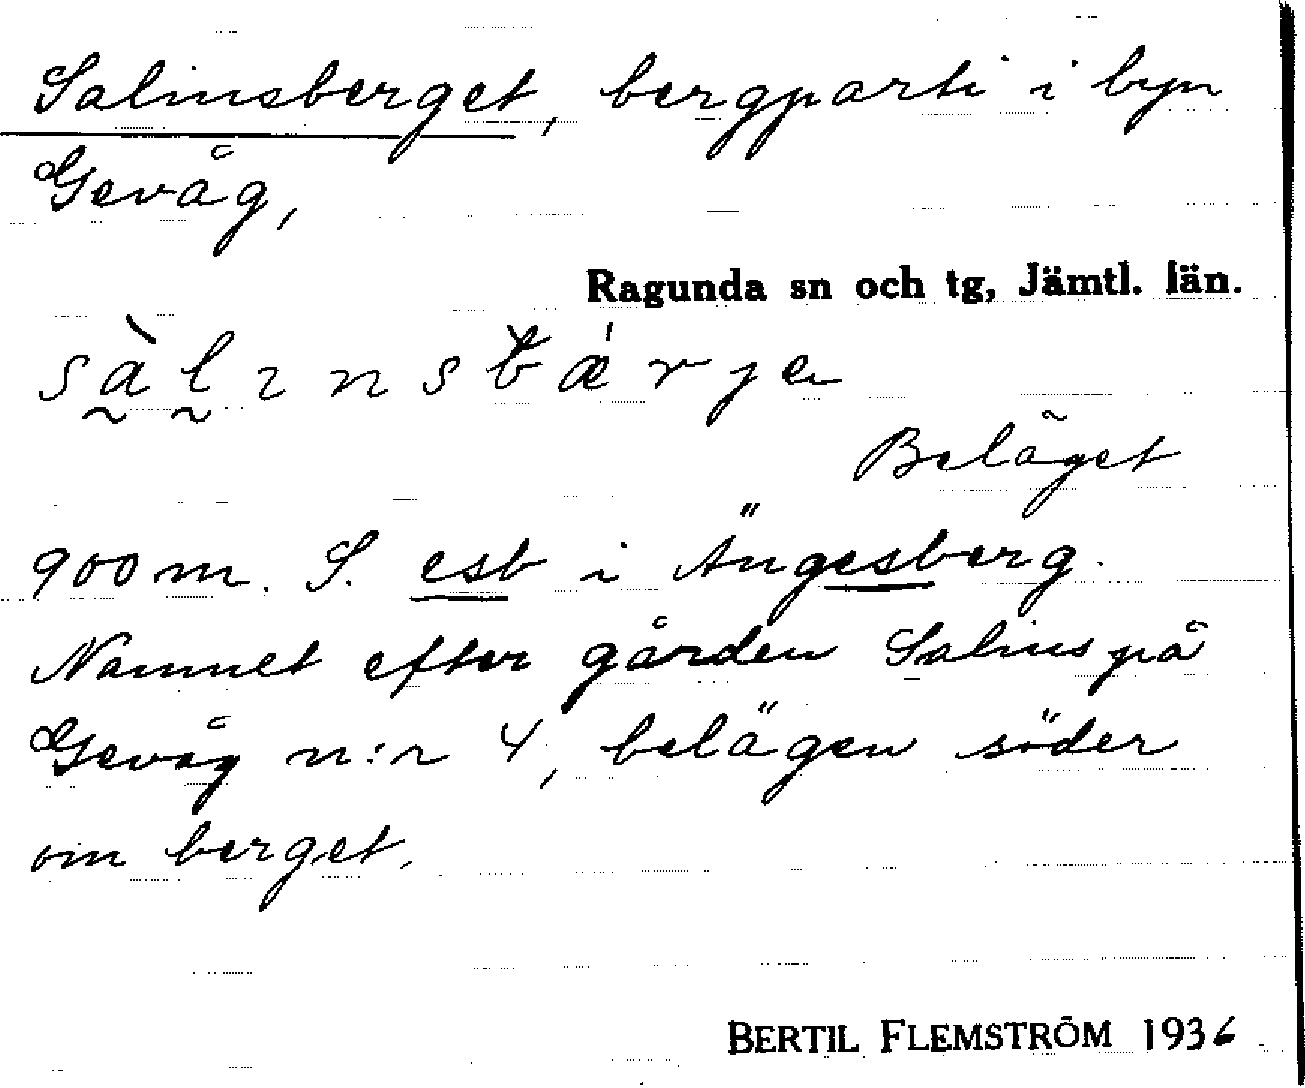 Salinsberget, bergparti i byn
Gevåg,
Ragunda sn och tg, Jämtl. län.
sàlınsbǽrje
Beläget
900 m. S. esb i Ängesberg.
Namnet efter gården Salins på
Gevåg n:r 4, belägen söder
om berget.
BERTIL FLEMSTRÖM 1936